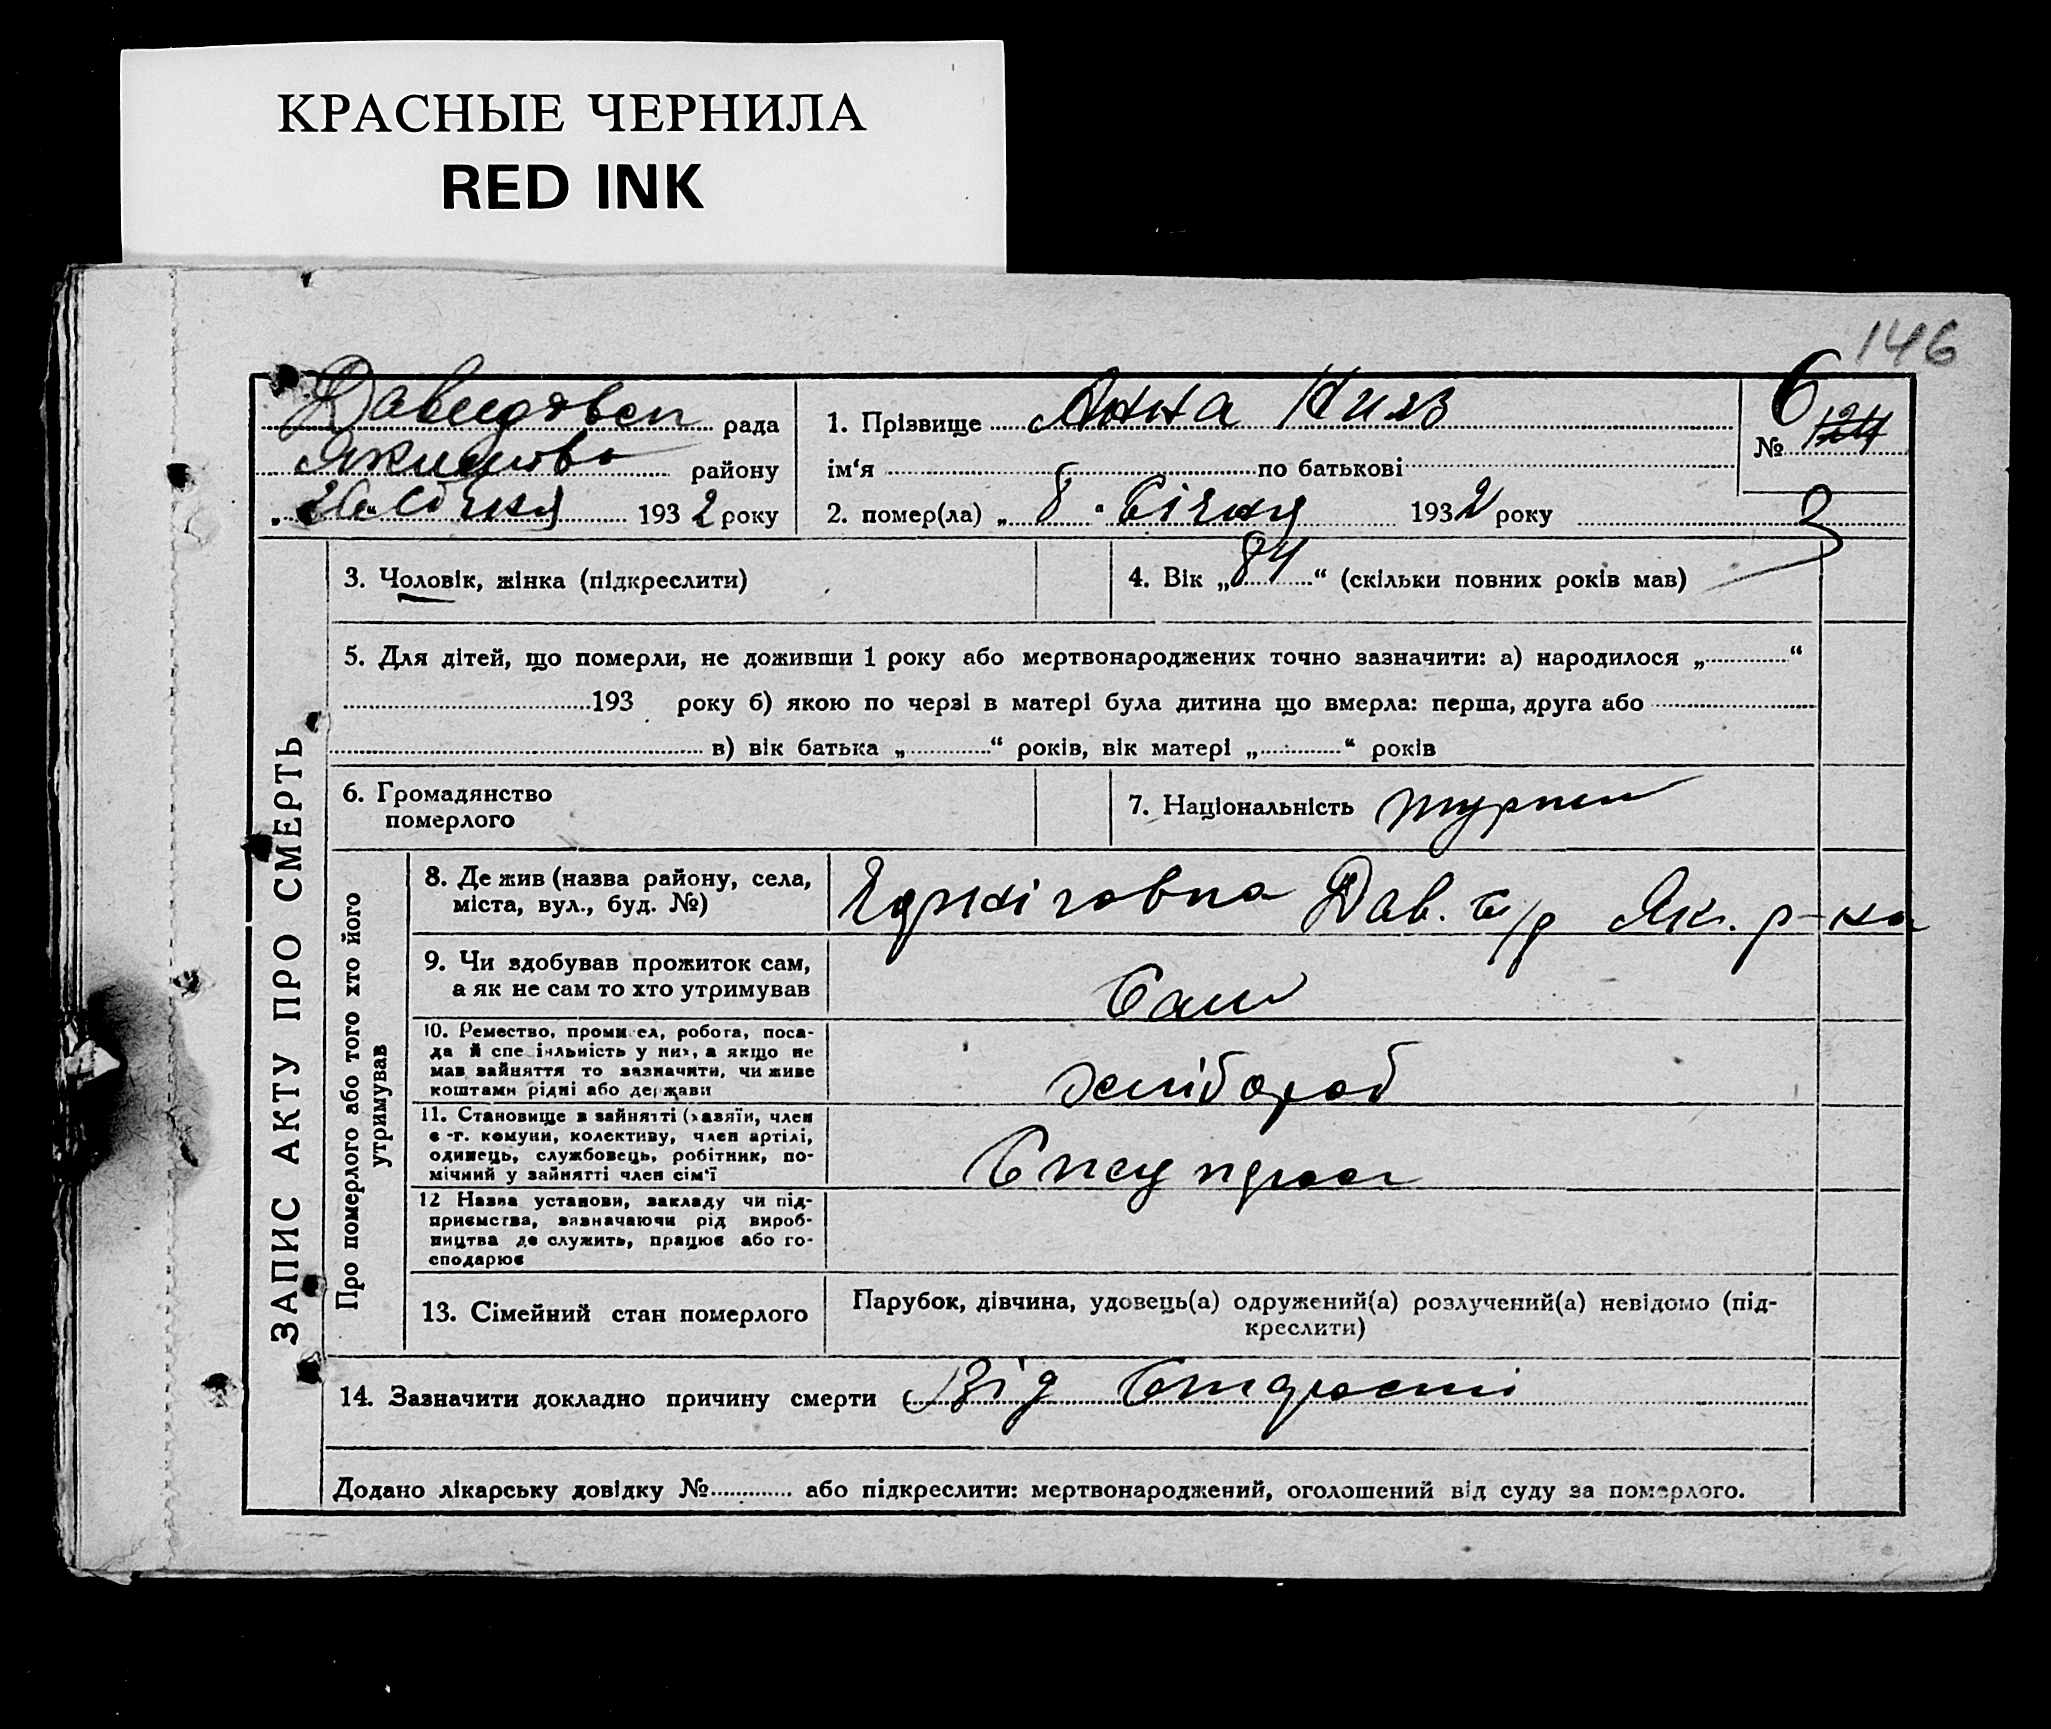 КРАСНЫЕ ЧЕРНИЛА
RED INK
146
рада
району
193 2 року
1. Прізвище Анна
ім‘я по батькові
2. помер(ла) „ 8 “ Січня 1932 року
6
№ 124
3
ЗАПИС АКТУ ПРО СМЕРТЬ
3. Чоловік, жінка (підкреслити)
4. Вік „ 84 “ (скільки повних років мав)
5. Для дітей, що померли, не доживши 1 року або мертвонароджених точно зазначити: а) народилося „ “
193 року б) якою по черзі в матері була дитина що вмерла: перша, друга або
в) вік батька „ “ років, вік матері „ “ років
6. Громадянство
померлого
7. Національність
Про померлого або того хто його
утримував
8. Де жив (назва району, села,
міста, вул., буд. №)
Дав. с/р Як. р-на
9. Чи здобував прожиток сам,
а як не сам то хто утримував
Сам
10. Ремество, промисел, робота, поса-
да й спеціяльність у них, а якщо не
мав зайняття то зазначити, чи живе
коштами рідні або держави
хлібороб
11. Становище в зайнятті (хазяїн, член
с.-г. комуни, колективу, член артілі,
одинець, службовець, робітник, по-
мічний у зайнятті член сім‘ї
12 Назва установи, закладу чи під-
приємства, зазначаючи рід вироб-
ництва де служить, працює або го-
сподарює
13. Сімейний стан померлого
Парубок, дівчина, удовець(а) одружений(а) розлучений(а) невідомо (під-
креслити)
14. Зазначити докладно причину смерти Від Старости
Додано лікарську довідку № або підкреслити: мертвонароджений, оголошений від суду за померлого.